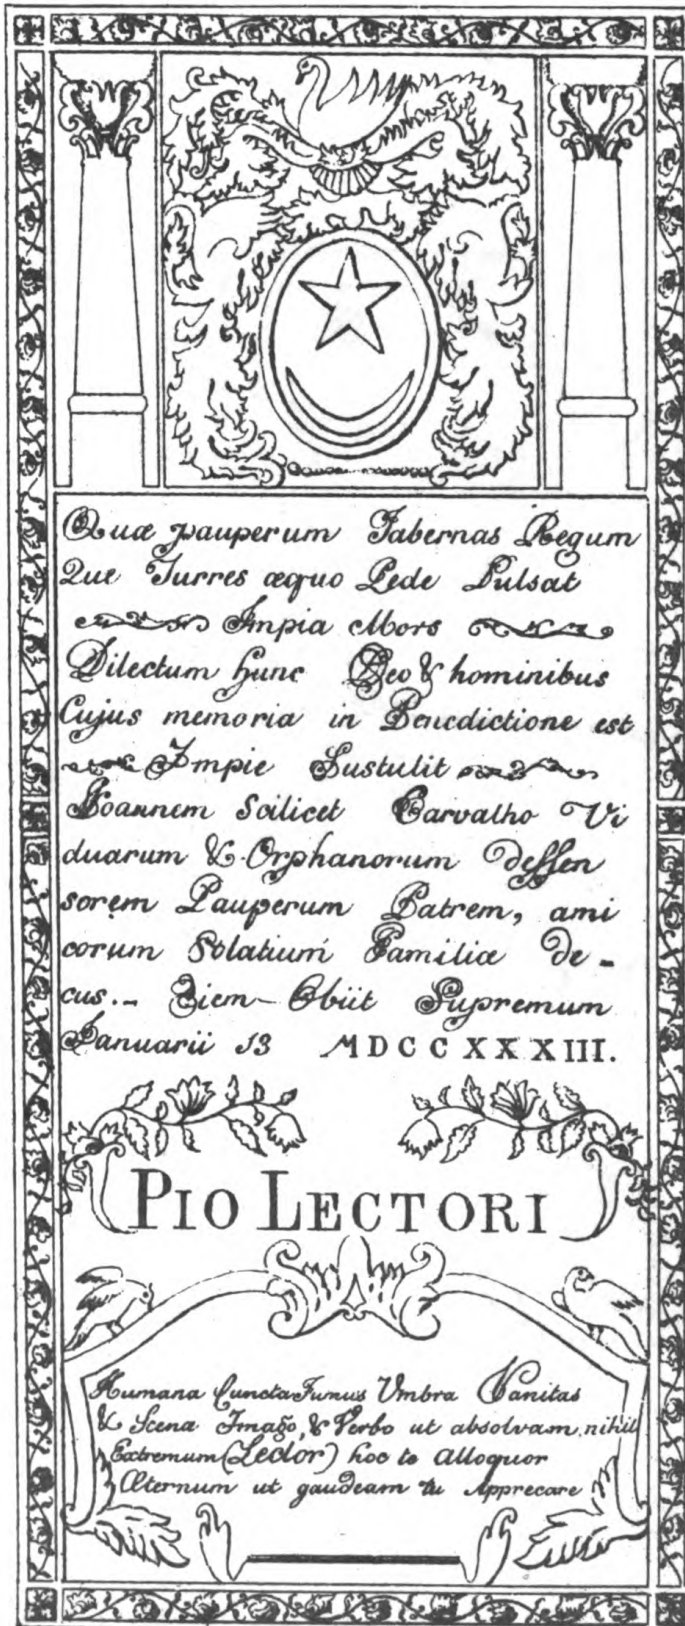 Quæ pauperum Tabernas Regum
Que Turres æquo Pede Pulsat
Impia Mors
Dilectum hunc Deo & hominibus
Cujus memoria in Benedictione est
Impie Sustulit
Joannem Scilicet Carvalho Vi
duarum & Orphanorum Deffen
sorem Pauperum Patrem, ami
corum Solatium Familiæ De-
cus.- Diem- Obiit Supremum
Januarii 13 MDCCXXXIII.
PIO LECTORI
Humana Cuncta Fumus Umbra Vanitas
& Scena Imago, & Verbo ut absolvam nihil
Extremum (Lector) hoc te Alloquor
Æternum ut gaudeam tu Apprecare